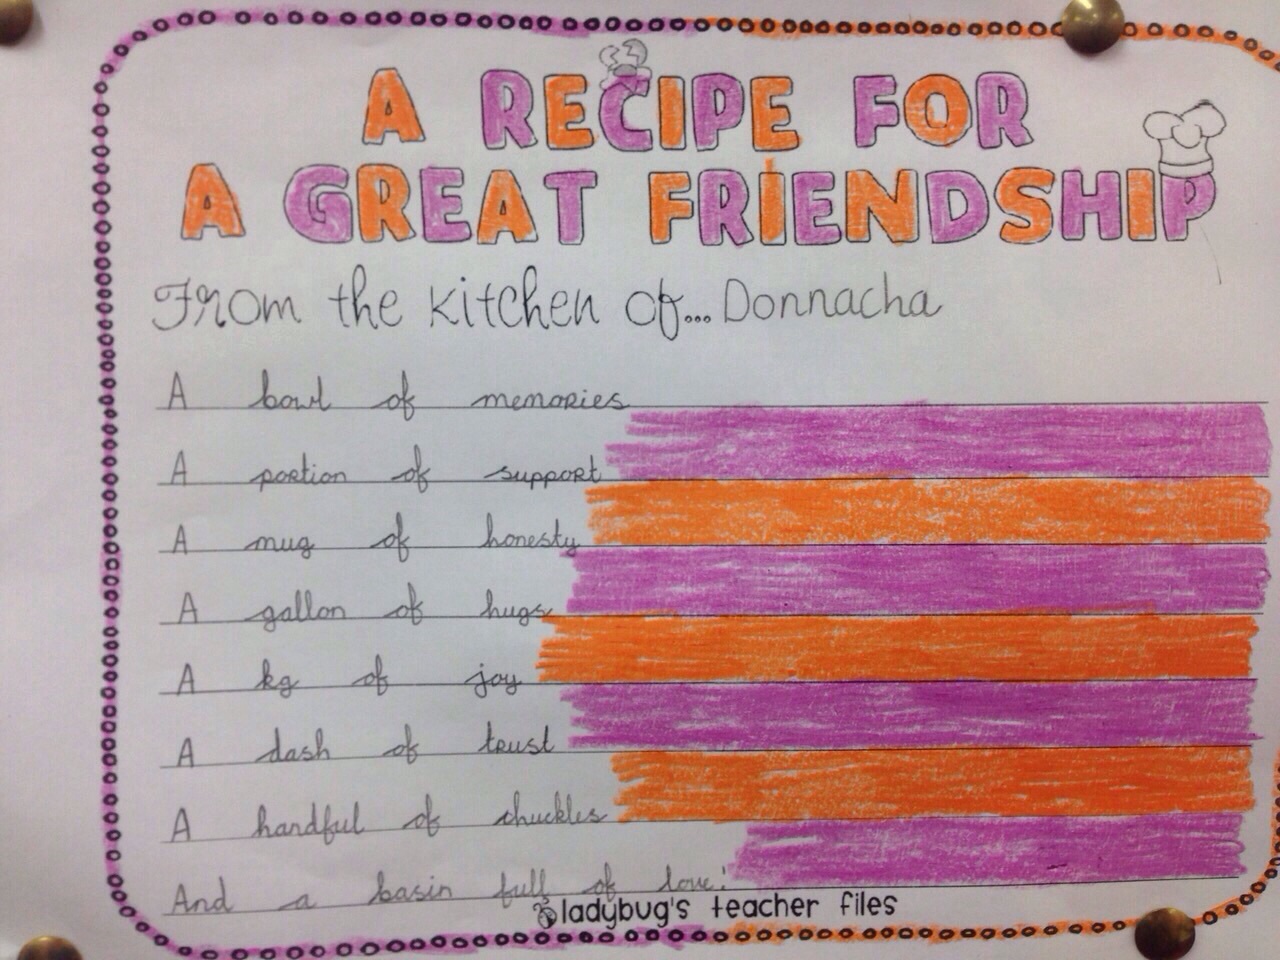 A RECIPE FOR
A GREAT FRIENDSHIP
From the kitchen of... Donnacha
A bowl of memories
A portion of support
A mug of honesty
A gallon of hugs
A kg of joy
A dash of trust
A handful of chuckles
And a basin full of love!
ladybug's teacher files